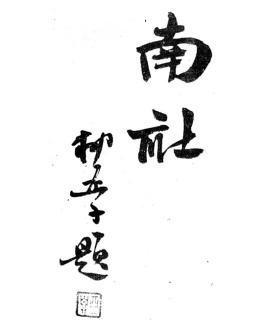 南社
柳亚子題